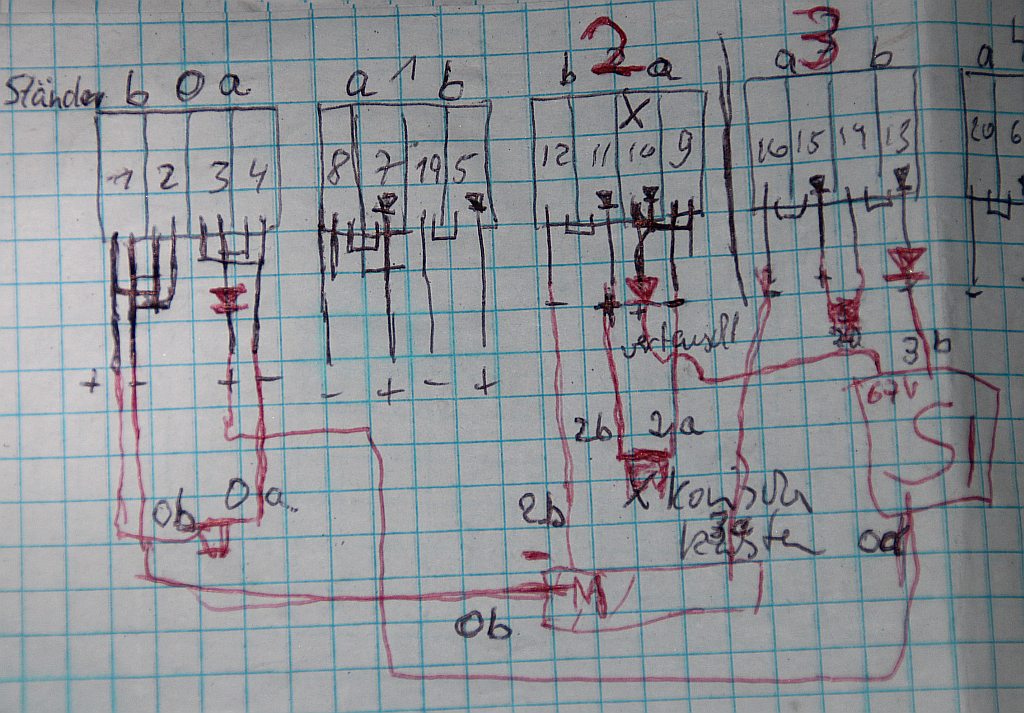 Ständer b 0 a
a 1 b
b 2 a
a 3 b
a 4
1 2 3 4
8 7 19 5
12 11 X 10 9
16 15 14 13
20 6
+ - + -
- + - +
- + + -
- +
-
vertauscht
3 b
67V
S1
2b 2a
X
0b 0a
2b
0a
-
M
0b